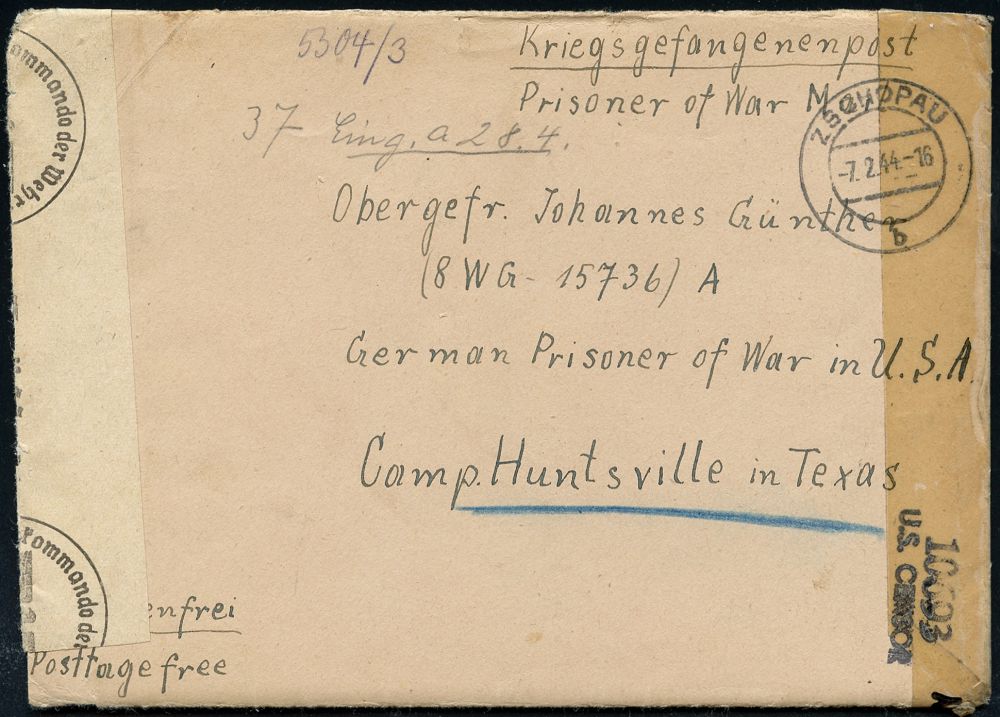 5304/3
Kriegsgefangenenpost
Prisoner of War M
37 Eing. a 28.4.
ZSCHOPAU
-7.2.44.-16
b
Obergefr. Johannes Günther
(8 WG - 15736) A
German Prisoner of War in U.S.A.
Camp. Huntsville in Texas
ommando der Wehr
ommando der
enfrei
Posttage free
U.S. CENSOR